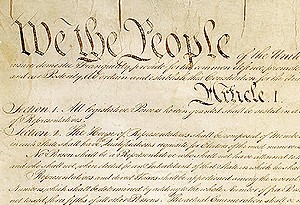 We the People of the Unit
insure domestic Tranquility, provide for the common defence, promote
and our Posterity, do ordain and establish this Constitution for the Unit
Article. I.
Section. 1. All legislative Powers herein granted shall be vested in a
of Representatives.
Section. 2. The House of Representatives shall be composed of Membe
in each State shall have Qualifications requisite for Electors of the most numerou
No Person shall be a Representative who shall not have attained
and who shall not, when elected, be an Inhabitant of that State in which he sha
Representatives and direct Taxes shall be apportioned among the several
Numbers, which shall be determined by adding to the whole Number of free
not taxed, three fifths of all other Persons. The actual Enumeration shall